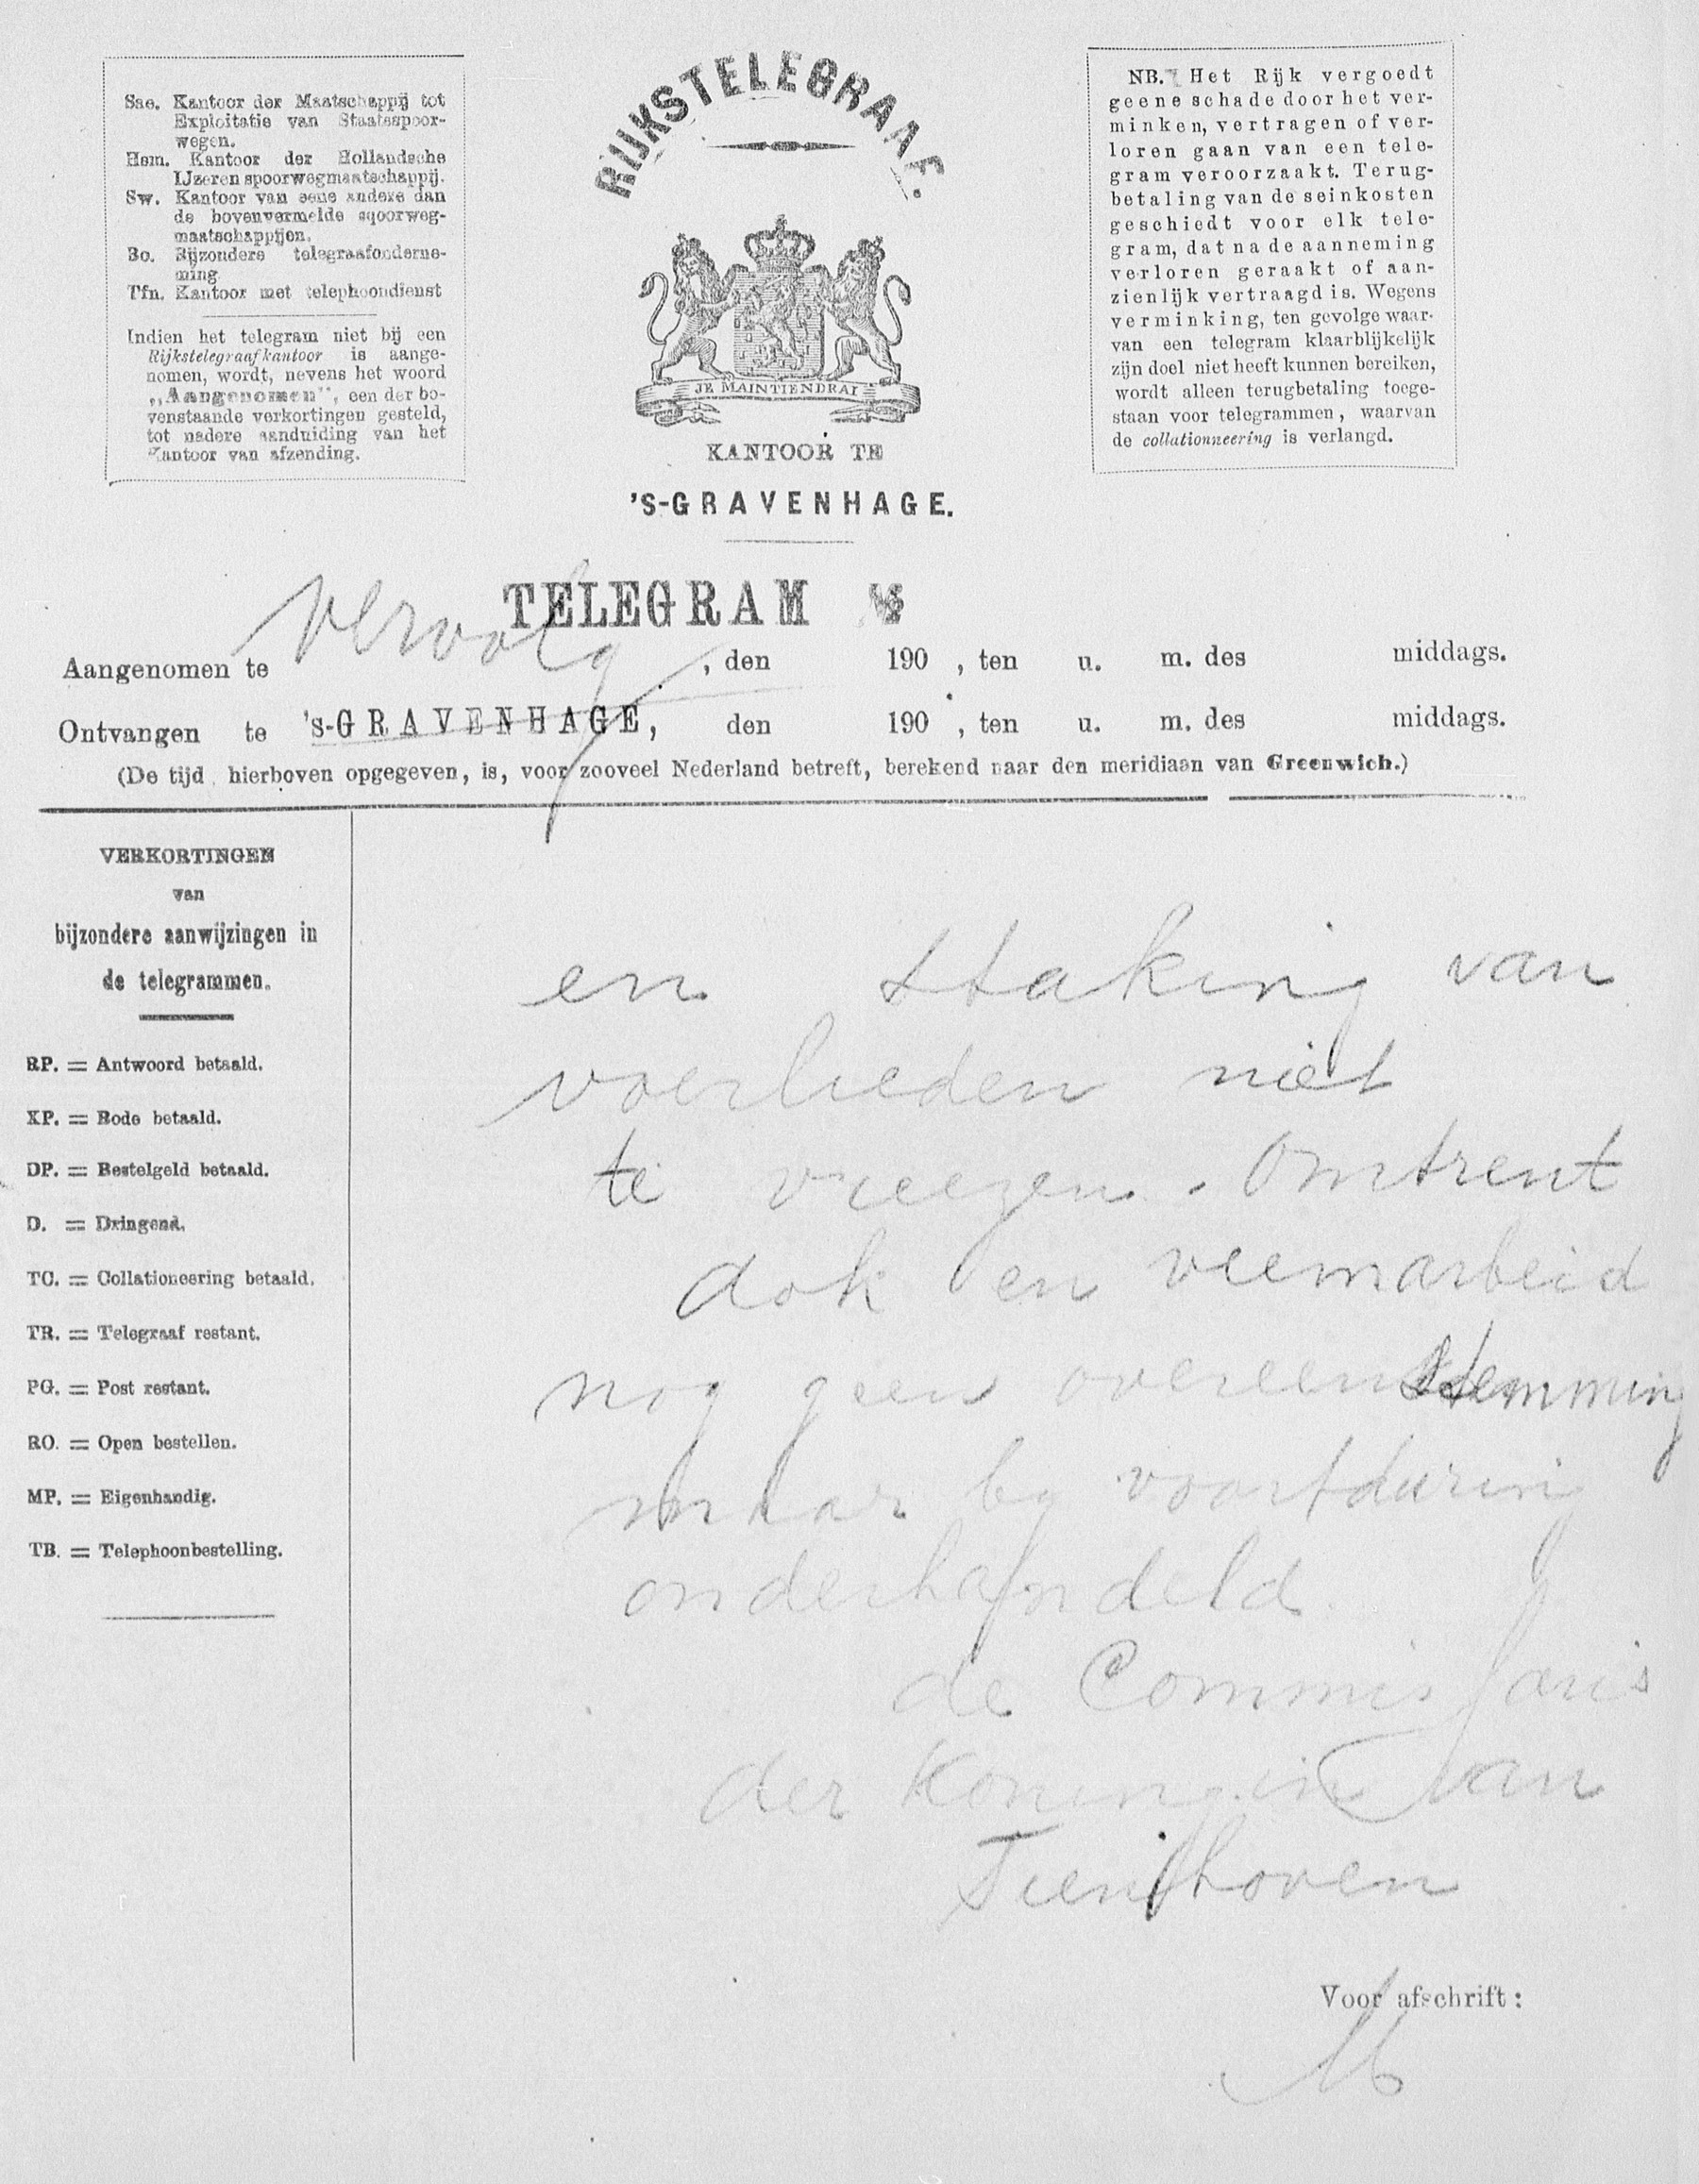 Sae. Kantoor der Maatschappij tot
Exploitatie van Staatsspoor-
wegen.
Hsm. Kantoor der Hollandsche
IJzeren spoorwegmaatschappij.
Sw. Kantoor van eene andere dan
de bovenvermelde spoorweg-
maatschappijen.
Bo. Bijzondere telegraafonderne-
ming
Tfn. Kantoor met telephoondienst
Indien het telegram niet bij een
Rijkstelegraafkantoor is aange-
nomen, wordt, nevens het woord
„Aangenomen", een der bo-
venstaande verkortingen gesteld,
tot nadere aanduiding van het
Kantoor van afzending.
RIJKSTELEGRAAF.
JE MAINTIENDRAI
KANTOOR TE
'S-GRAVENHAGE.
NB. Het Rijk vergoedt
geene schade door het ver-
minken, vertragen of ver-
loren gaan van een tele-
gram veroorzaakt. Terug-
betaling van de seinkosten
geschiedt voor elk tele-
gram, dat na de aanneming
verloren geraakt of aan-
zienlijk vertraagd is. Wegens
verminking, ten gevolge waar-
van een telegram klaarblijkelijk
zijn doel niet heeft kunnen bereiken,
wordt alleen terugbetaling toege-
staan voor telegrammen, waarvan
de collationneering is verlangd.
TELEGRAM №
Vervolg
Aangenomen te , den 190 , ten u. m. des middags.
Ontvangen te 's-GRAVENHAGE, den 190 , ten u. m. des middags.
(De tijd hierboven opgegeven, is, voor zooveel Nederland betreft, berekend naar den meridiaan van Greenwich.)
VERKORTINGEN
van
bijzondere aanwijzingen in
de telegrammen.
RP. = Antwoord betaald.
XP. = Bode betaald.
DP. = Bestelgeld betaald.
D. = Dringend.
TC. = Collationeering betaald.
TR. = Telegraaf restant.
PG. = Post restant.
RO. = Open bestellen.
MP. = Eigenhandig.
TB. = Telephoonbestelling.
en staking van
voerlieden niet
te vreezen. Omtrent
dok en veemarbeid
nog geen overeenstemming
maar by voortduring
onderhandeld
de Commissaris
der Koningin van
Tienhoven
Voor afschrift: